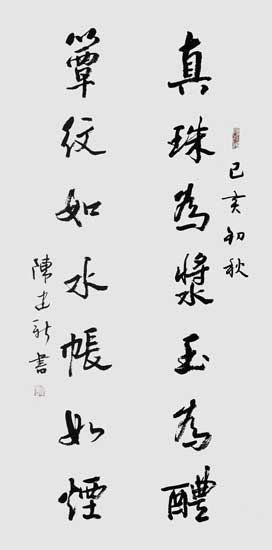 己亥初秋
真珠為漿玉為醴
簟紋如水帳如煙
陳建新書